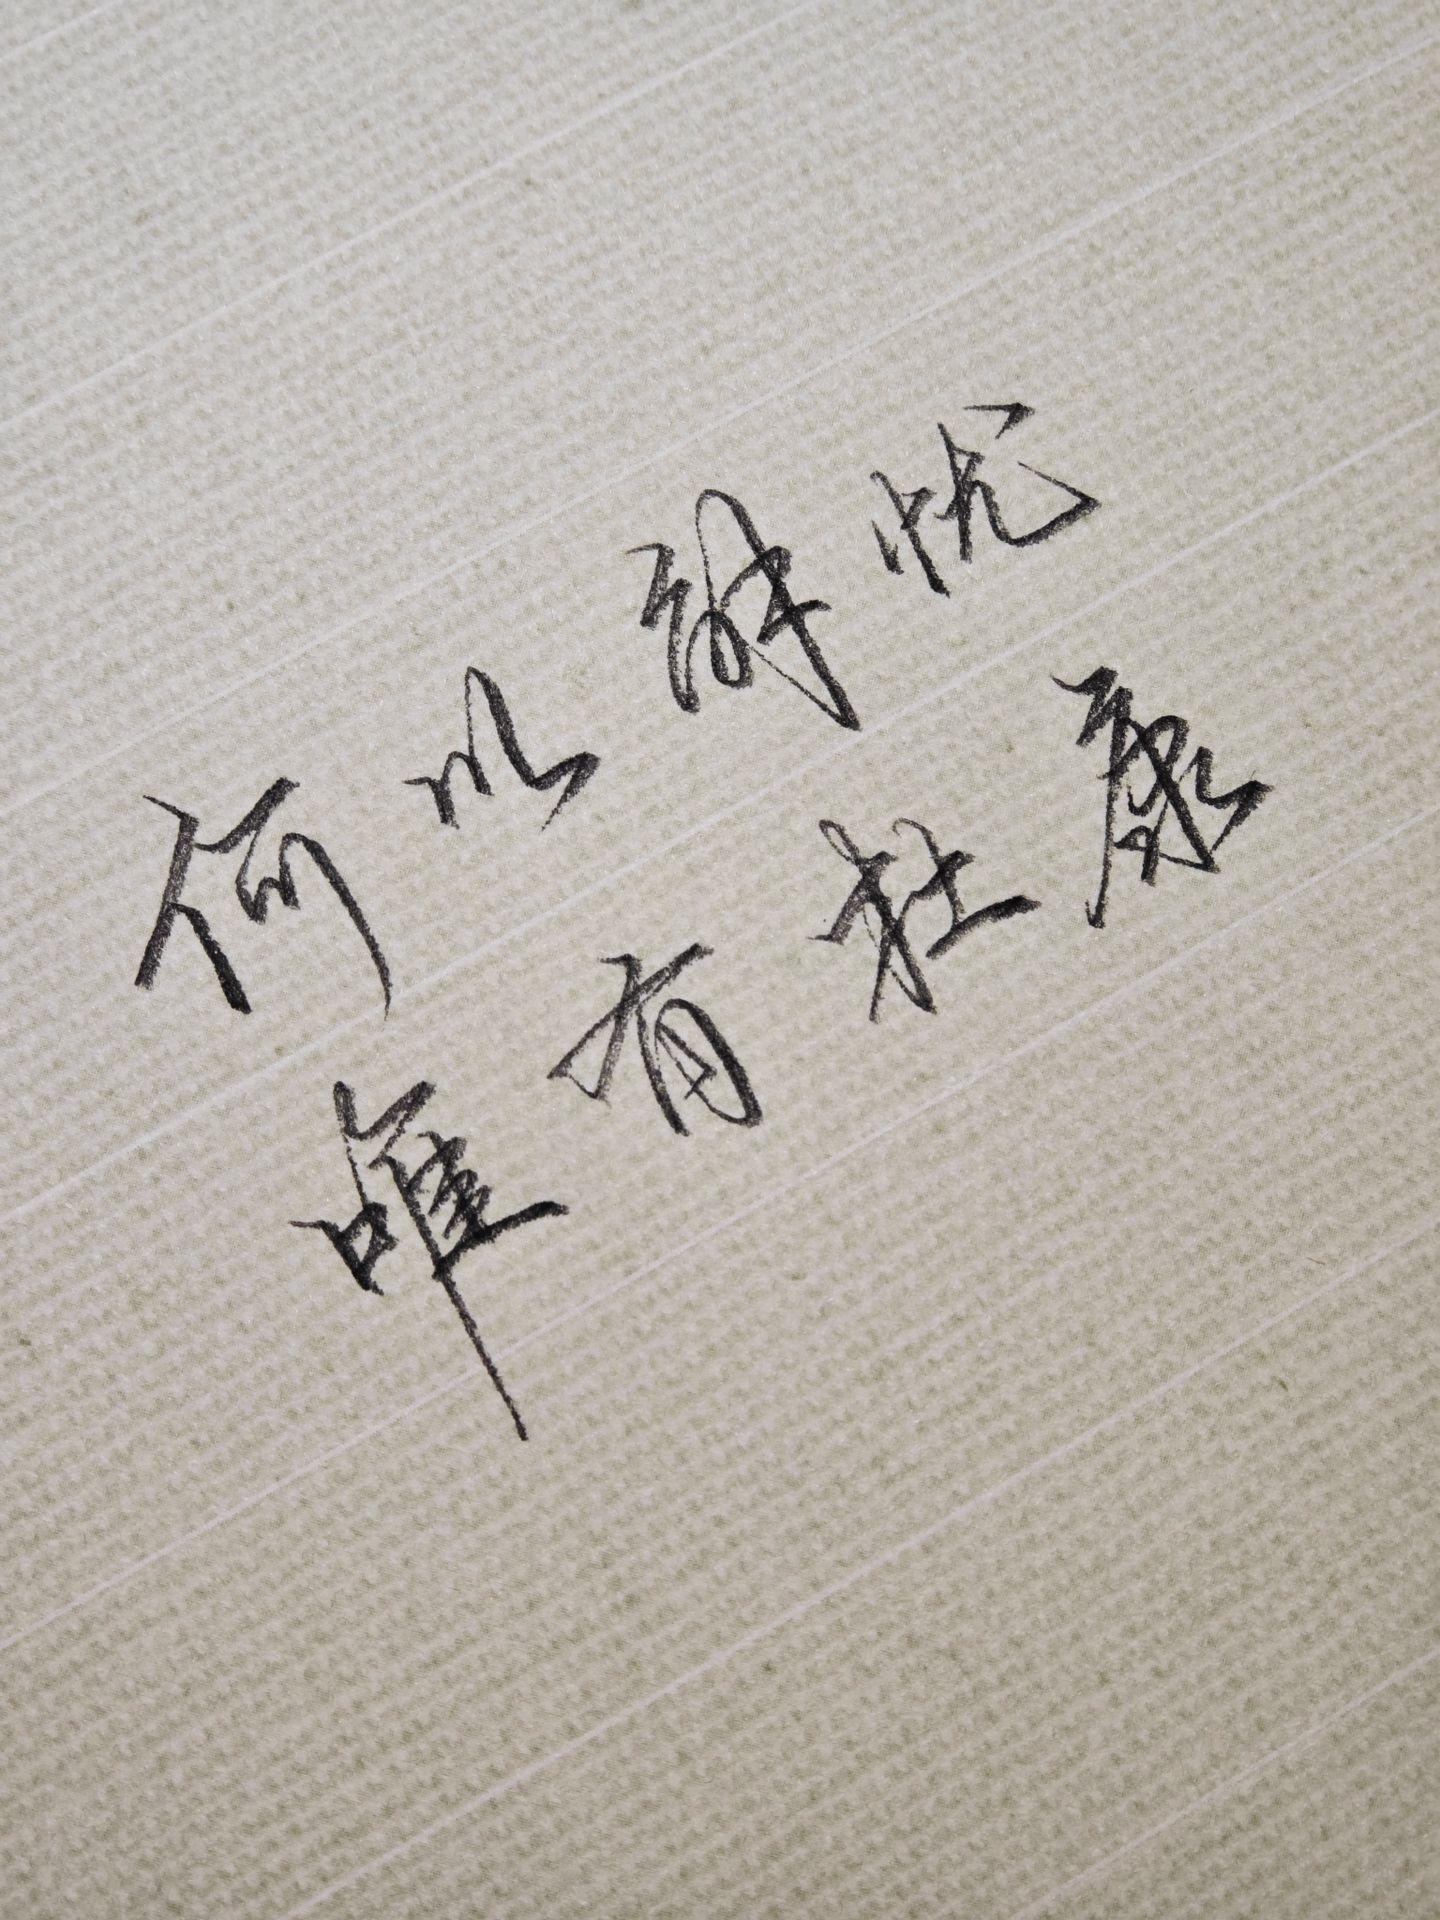 何以解忧
唯有杜康